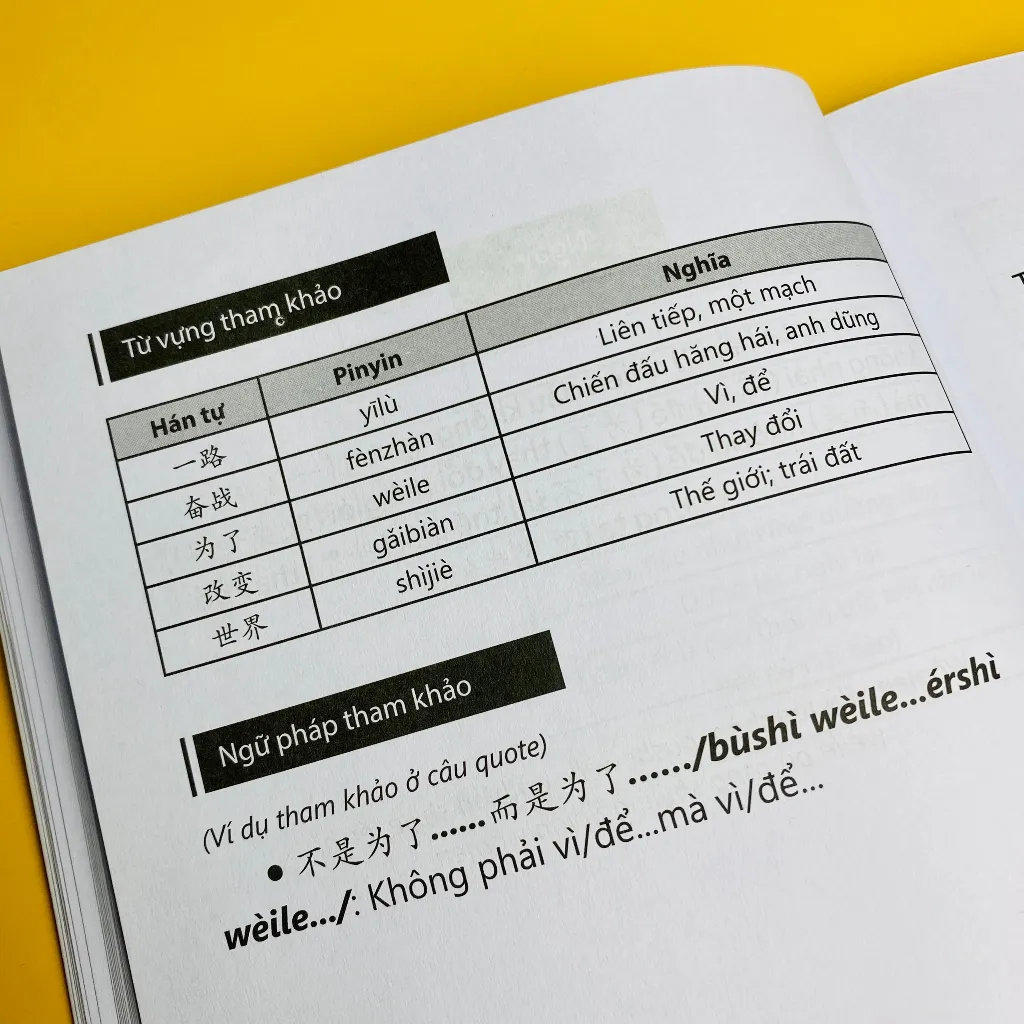 Từ vựng tham khảo
Hán tự Pinyin Nghĩa
一路 yīlù Liên tiếp, một mạch
奋战 fènzhàn Chiến đấu hăng hái, anh dũng
为了 wèile Vì, để
改变 gǎibiàn Thay đổi
世界 shìjiè Thế giới; trái đất
Ngữ pháp tham khảo
(Ví dụ tham khảo ở câu quote)
● 不是为了......而是为了....../bùshì wèile...érshì
wèile.../: Không phải vì/để...mà vì/để...